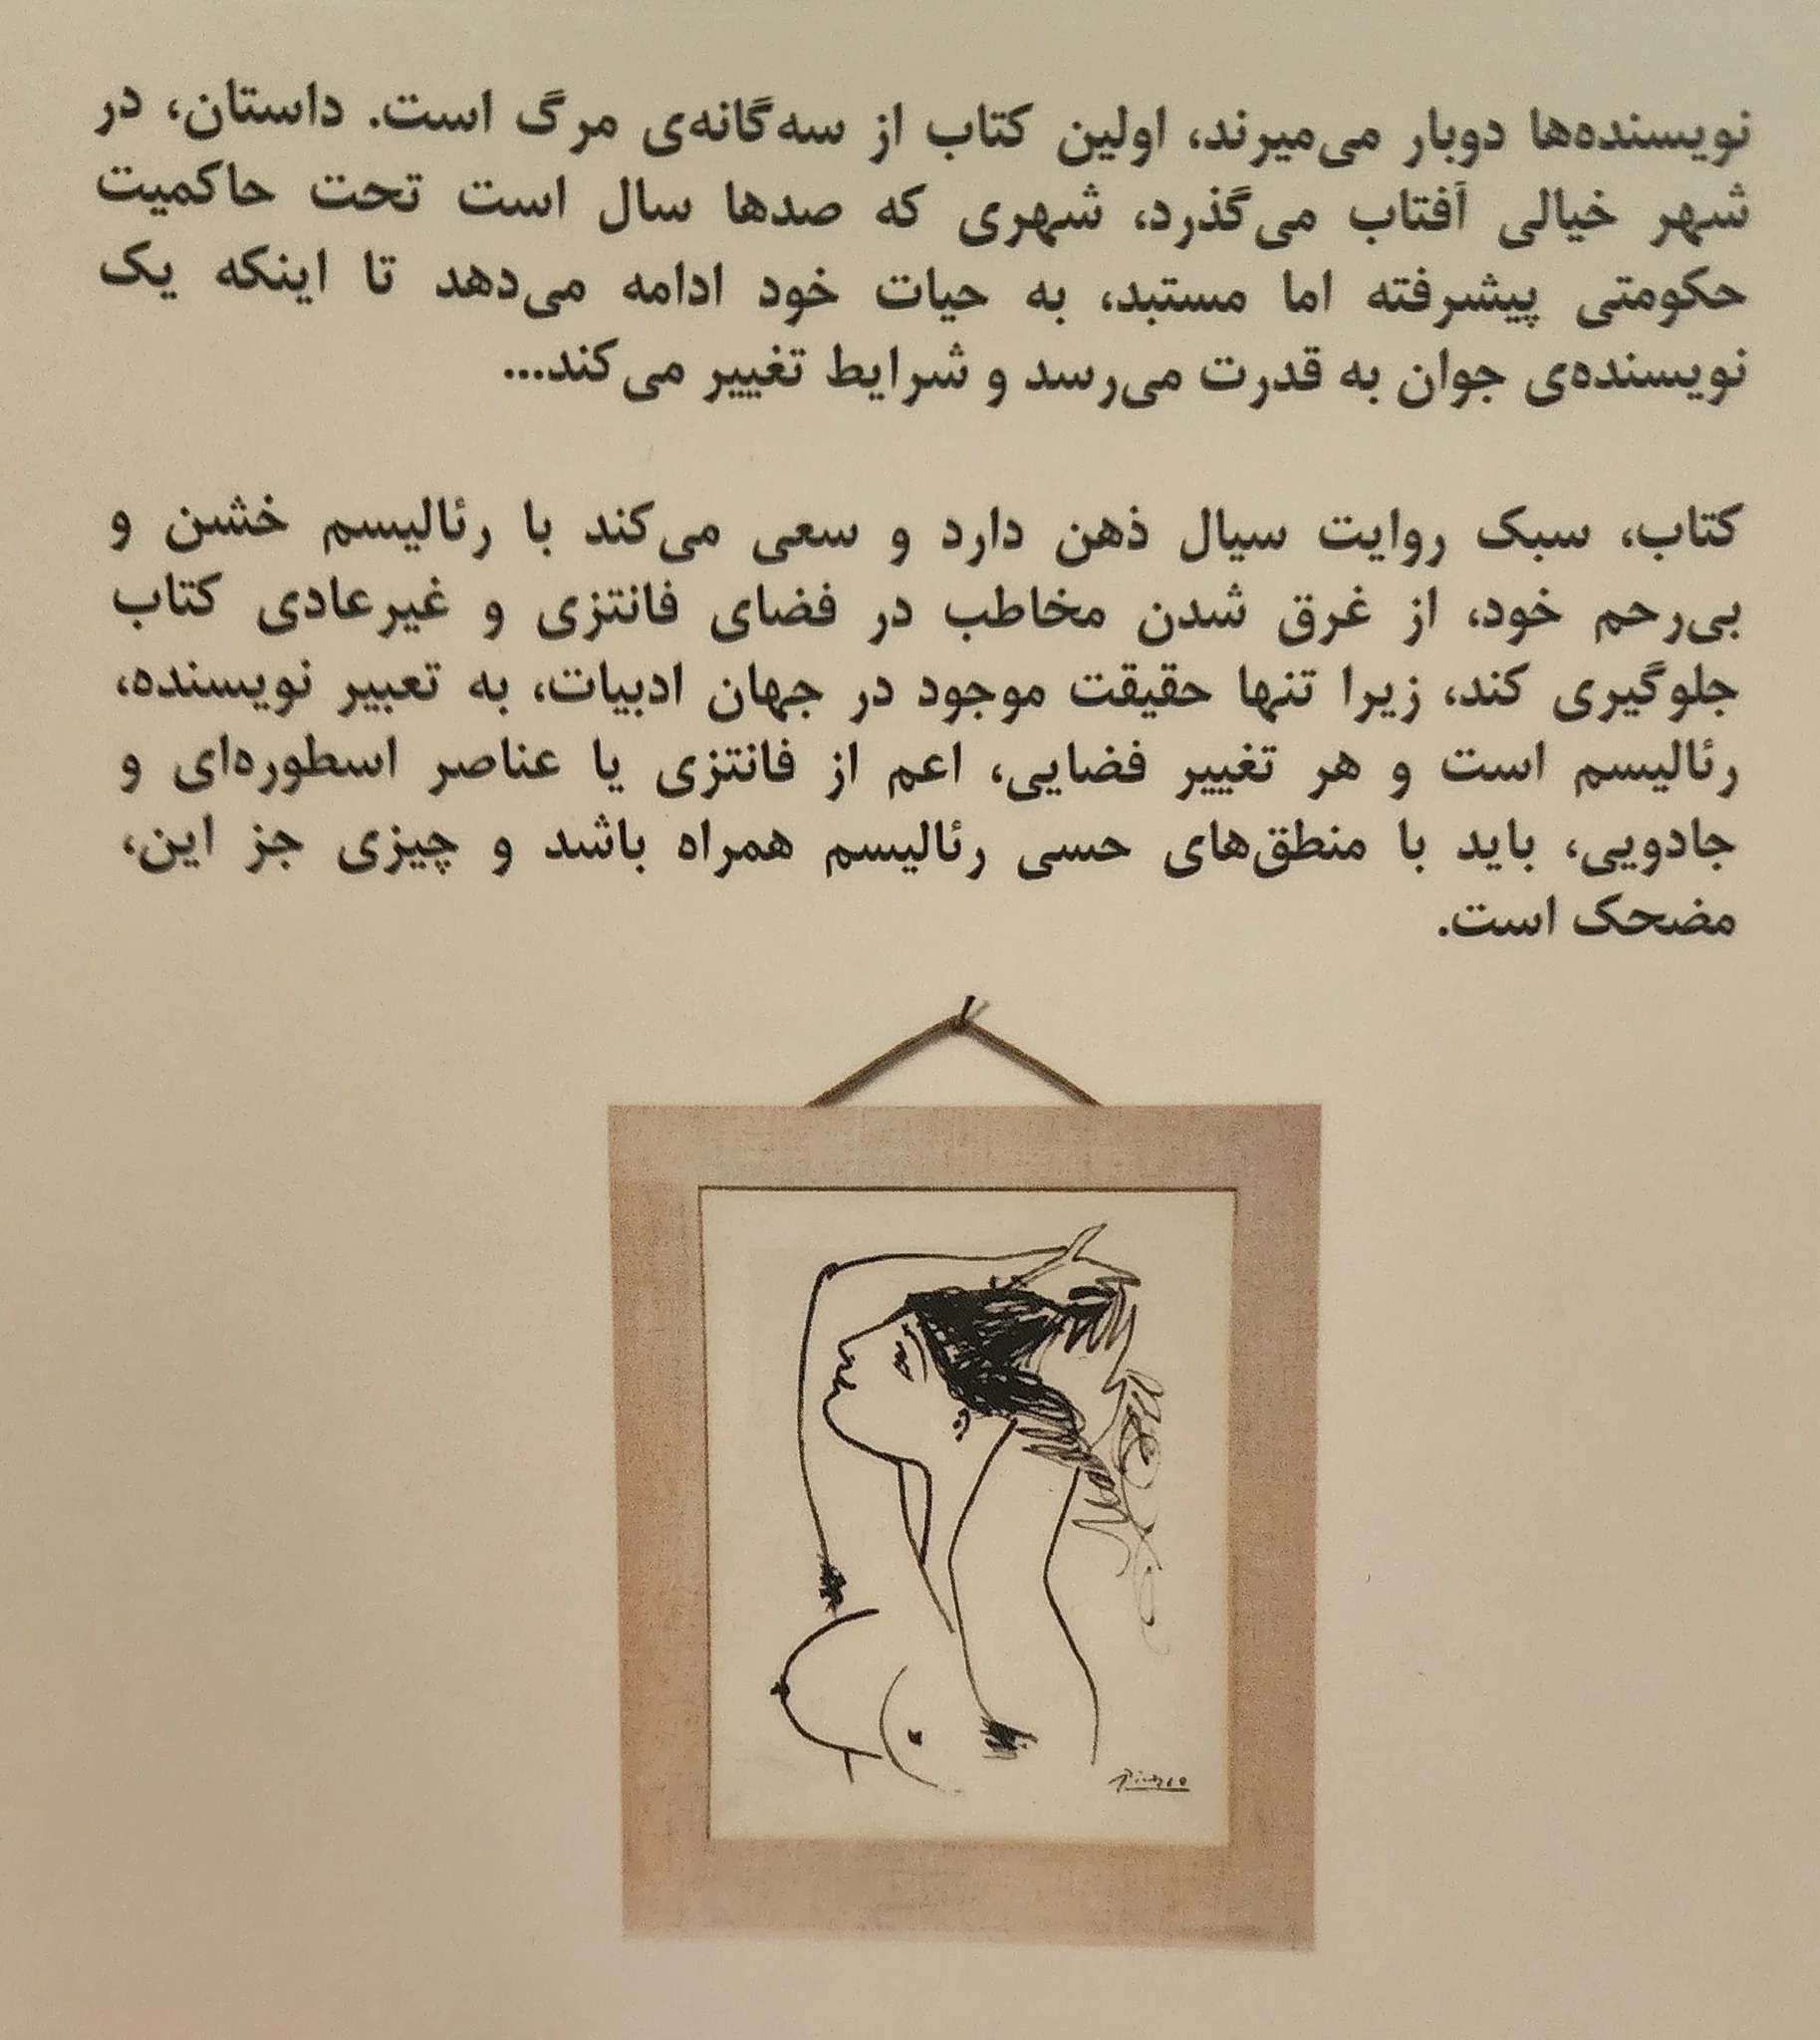 نویسنده‌ها دوبار می‌میرند، اولین کتاب از سه‌گانه‌ی مرگ است. داستان، در
شهر خیالی آفتاب می‌گذرد، شهری که صدها سال است تحت حاکمیت
حکومتی پیشرفته اما مستبد، به حیات خود ادامه می‌دهد تا اینکه یک
نویسنده‌ی جوان به قدرت می‌رسد و شرایط تغییر می‌کند...
کتاب، سبک روایت سیال ذهن دارد و سعی می‌کند با رئالیسم خشن و
بی‌رحم خود، از غرق شدن مخاطب در فضای فانتزی و غیرعادی کتاب
جلوگیری کند، زیرا تنها حقیقت موجود در جهان ادبیات، به تعبیر نویسنده،
رئالیسم است و هر تغییر فضایی، اعم از فانتزی یا عناصر اسطوره‌ای و
جادویی، باید با منطق‌های حسی رئالیسم همراه باشد و چیزی جز این،
مضحک است.
Picasso